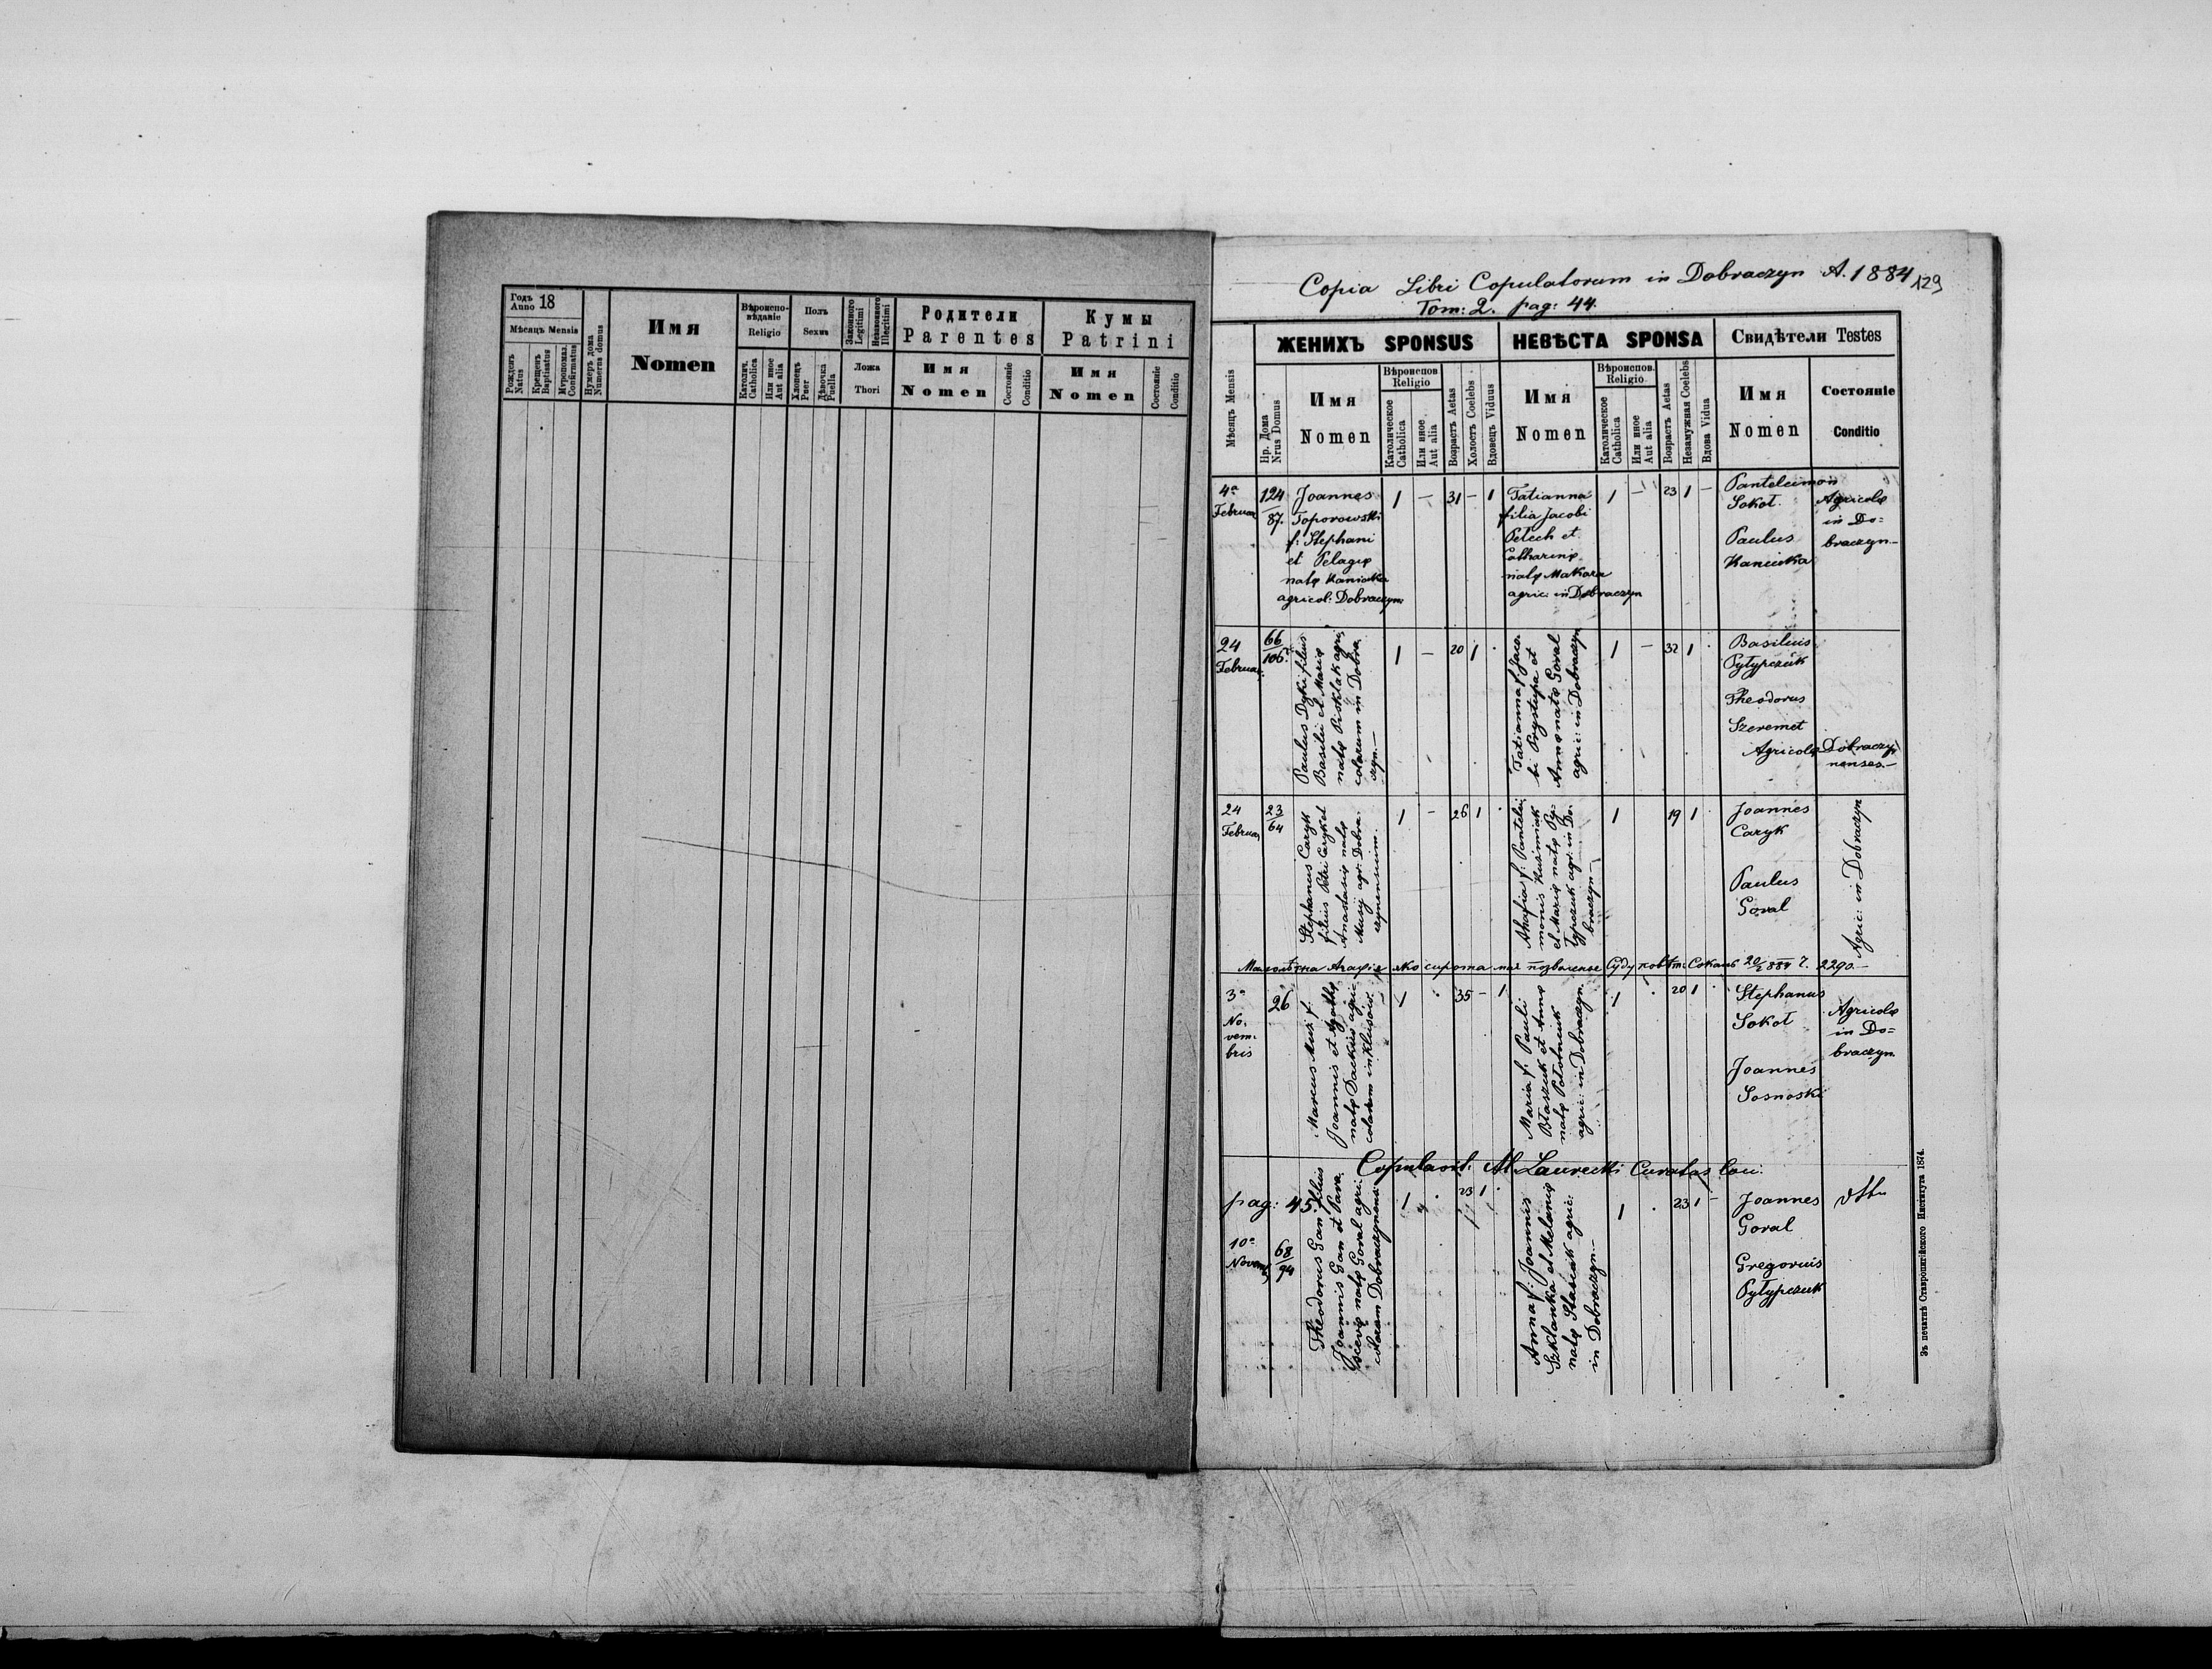 Годъ 18
Anno
Мѣсяцъ Mensis
Рожденъ
Natus
Крещенъ
Baptisatus
Муропомаз.
Confirmatus
Нумеръ дома
Numerus domus
Имя
Nomen
Вѣроиспо-
вѣданіе
Religio
Католич.
Catholica
Или иное
Aut alia
Полъ
Sexus
Хлопецъ
Puer
Дѣвочка
Puella
Законного
Legitimi
Незаконного
Illegitimi
Ложа
Thori
Родители
Parentes
Имя
Nomen
Состояніе
Conditio
Кумы
Patrini
Имя
Nomen
Состояніе
Conditio
Copia Libri Copulatorum in Dobraczyn A. 1884
129
Tom: 2. pag: 44.
Мѣсяцъ Mensis
ЖЕНИХЪ SPONSUS
НЕВѢСТА SPONSA
Свидѣтели Testes
Нр. Дома
Nrus Domus
Имя
Nomen
Вѣроиспов.
Religio
Католическое
Catholica
Или иное
Aut alia
Возрастъ Aetas
Холостъ Coelebs
Вдовецъ Viduus
Имя
Nomen
Вѣроиспов.
Religio
Католическое
Catholica
Или иное
Aut alia
Возрастъ Aetas
Незамужная Coelebs
Вдова Vidua
Имя
Nomen
Состояніе
Conditio
4a
Februar
124
87.
Joannes
Toporowski
f: Stephani
et Pelagię
natę Kaniuka
agricol: Dobraczyn:
1 — 31 — 1
Tatianna
filia Jacobi
Pelech et
Catharinę
natę Makara
agric: in Dobraczyn
1 — 23 1 —
Panteleimon
Sokoł.
Paulus
Kaniuka
Agricolę
in Do=
braczyn—
24
Februar
66
106.
Paulus Dyki filius
Basilii et Marię
natę Pisklak agri
colarum in Dobra
czyn.—
1 — 20 1 .
Tatianna f. Jaco
bi Prystupa et
Annę natę Goral
agric: in Dobraczyn
1 — 32 1 .
Basilius
Pyłypczuk
Theodorus
Szeremet
Agricolę Dobraczy
nenses.—
24
Februar
23
64
Stephanus Caryk
filius Petri Caryk et
Anastasię natę
Musij agr: Dobra
czynensium.
1 — 26 1 .
Ahafia f: Pantelei
monis Kuźmiak
et Marię natę Py:
łypczuk agr: in Do
braczyn—
1 19 1 .
Joannes
Caryk
Paulus
Goral
Agric: in Dobraczyn
Малолѣтна Агафія яко сирота мая позволенье Суду повѣт: Сокаль 20/2 884 Ч. 2290.—
3a
No.
vem.
bris
26
Marcus Musi f.
Joannis et Agathę
natę Dackiu agri
colarum in
1 . 35 — 1
Maria f. Pauli
Błaszczuk et Annę
natę
agric: in Dobraczyn
1 . 20 1 .
Stephanus
Sokoł
Joannes
Sosnoski
Agricolę
in Do=
braczyn
Copulavit Al. Laurecki Curatus loci.
pag: 45.
10a
Novemb
68
94
Theodorus Gan filius
Joannis Gan et Para
scevię natę Goral agri
colarum Dobraczynens
1 . 23 1 .
Anna f: Joannis
Szklanka et Melanię
natę Stasiuk agric:
in Dobraczyn.—
1 . 23 1 —
Joannes
Goral
Gregorius
Pyłypczuk
dtto
Зъ печатнѣ Ставропигійского Института 1874.